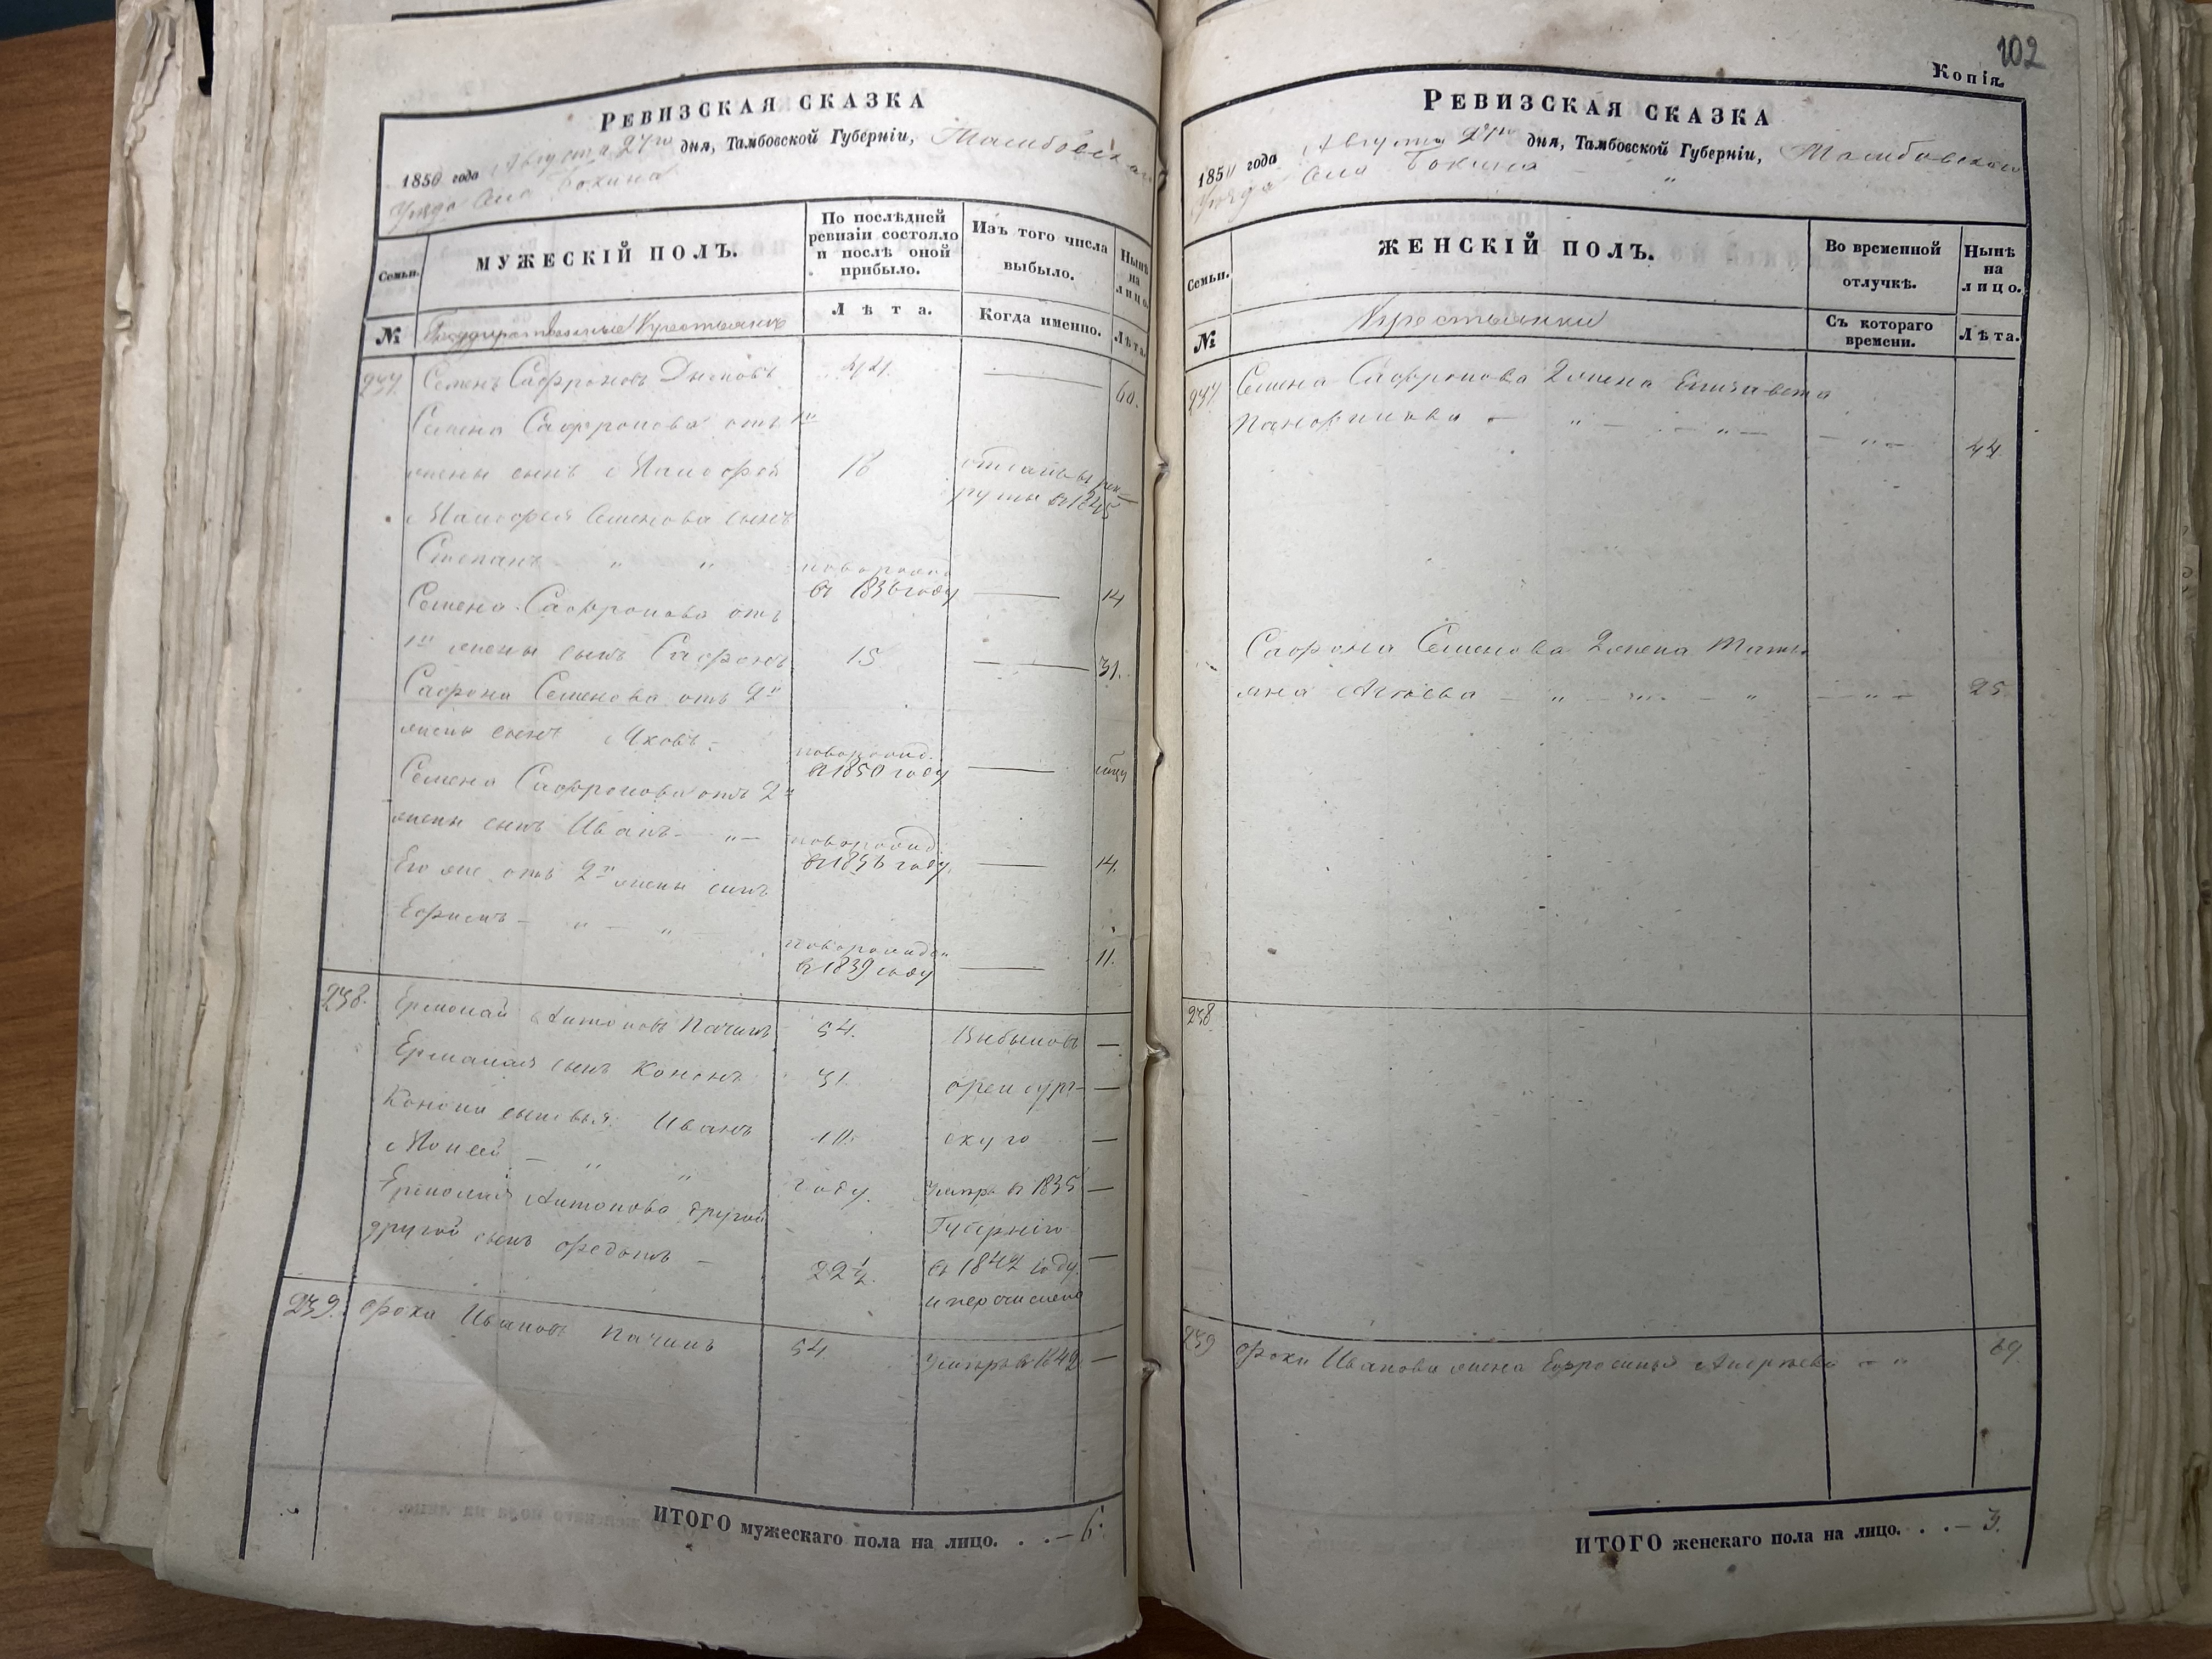 РЕВИЗСКАЯ СКАЗКА
1850 года Августа 24го дня, Тамбовской Губерніи, Тамбовскаго
Уезда Села Бокина
Семьи. МУЖЕСКІЙ ПОЛЪ. По послѣдней ревизіи состояло и послѣ оной прибыло. Изъ того числа выбыло. Нынѣ на лицо.
№ Государственные Крестьяне Лѣта. Когда именно. Лѣта.
237. Семенъ Сафроновъ 44. 60.
Семена Сафронова отъ 1й
жены сынъ 18 отданъ въ рек
руты въ 1845
Семенова сынъ
Степанъ " " новорожд
въ 1836 году 14
Семена Сафронова отъ
1й жены сынъ Сафронъ 15 31.
Сафрона Семенова отъ 2й
жены сынъ Яковъ новорожд.
въ 1850 году
Семена Сафронова отъ 2й
жены сынъ Иванъ " новорожд
въ 1836 году 14.
Его же отъ 2й жены сынъ
Ефимъ " " новорожден
въ 1839 году 11.
238. Ермолай Антоновъ Пачинъ 54. Выбылъ въ
Ермолая сынъ Кононъ 31 оренбург
Конона сыновья Иванъ 10. скую
Мосей " " году. умеръ въ 1835
Ермолая Антонова другой Губернію
другой сынъ Федотъ 22 1/2. въ 1842 году
и перечислены
239. Фока Ивановъ Пачинъ 54 умеръ въ 1842
ИТОГО мужескаго пола на лицо. . . 6.
102
Копія.
РЕВИЗСКАЯ СКАЗКА
1850 года Августа 24го дня, Тамбовской Губерніи, Тамбовскаго
Уезда Села Бокина "
Семьи. ЖЕНСКІЙ ПОЛЪ. Во временной отлучкѣ. Нынѣ на лицо.
№ Крестьянки Съ котораго времени. Лѣта.
237. Семена Сафронова 2 жена Елизавета
" " " 44
Сафрона Семенова 2 жена Татья
на " " " 25
238
239 Фоки Иванова жена Ефросинья " 69.
ИТОГО женскаго пола на лицо. . . 3.